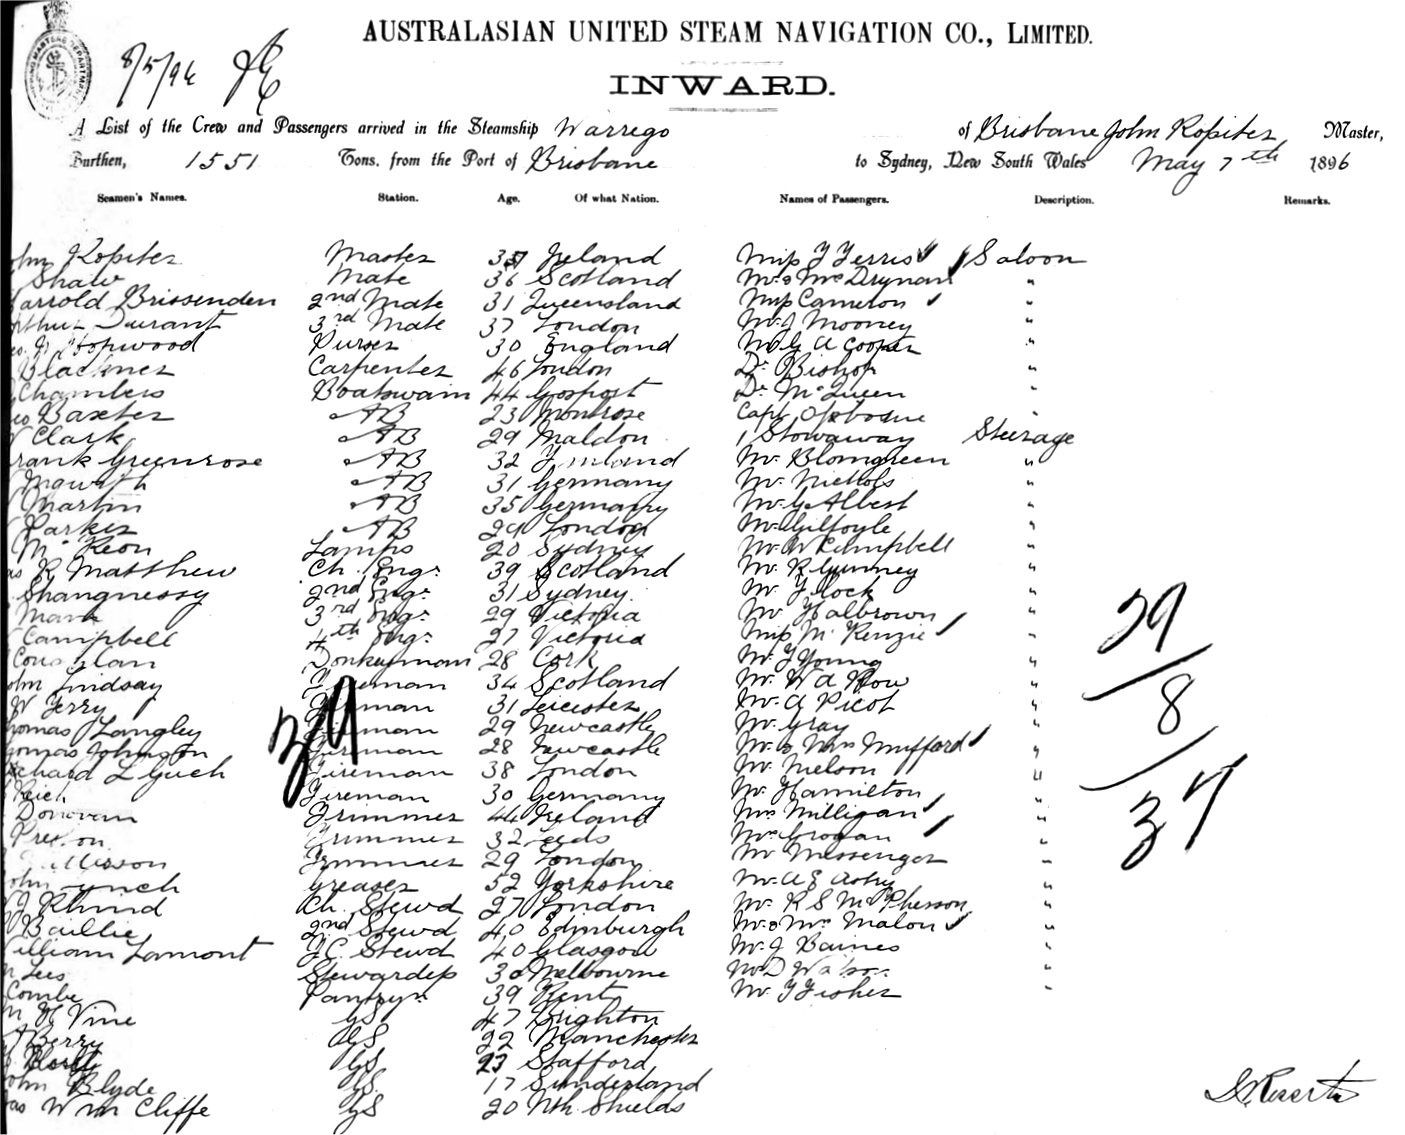 AUSTRALASIAN UNITED STEAM NAVIGATION CO., LIMITED.
8/5/96
INWARD.
A List of the Crew and Passengers arrived in the Steamship Warrego of Brisbane John Kopiter Master,
Burthen, 1551 Tons, from the Port of Brisbane to Sydney, New South Wales May 7th 1896
Seamen's Names. Station. Age. Of what Nation. Names of Passengers. Description. Remarks.
ohn Kopiter Master Ireland Miss F Ferris Saloon
Shaw Mate 36 Scotland Mr & Mrs Drynan "
arrold Brissenden 2nd Mate 31 Queensland Miss Cameron "
rthur Durant 3rd Mate 37 London Mr J Mooney "
eo Hopwood Purser 30 England Mr G A Cooper "
Blackner Carpenter 46 London Dr Bishop "
Chambers Boatswain 44 Gosport Dr McQueen "
eo Baxter AB 23 Montrose Capt Osborne "
Clark AB 29 Maldon 1 Stowaway Steerage
rank Greenrose AB 32 Finland Mr Blomgreen "
AB 31 Germany Mr Nichols "
Martin AB 35 Germany Mr G Albert "
Parker AB 29 London Mr Gilfoyle "
McKeon Lamps 20 Sydney Mr W Campbell "
as R Matthew Ch. Engr 39 Scotland Mr R Gunney "
Shangnessy 2nd Engr 31 Sydney Mr F Lock "
Mann 3rd Engr 29 Victoria Mr Halbrown "
Campbell 4th Engr 27 Victoria Miss McKenzie "
Coughlan Donkeyman 28 Cork Mr F Young "
ohn Lindsay Fireman 34 Scotland Mr W A Row "
W Terry Fireman 31 Leicester Mr A Picot "
homas Langley Fireman 29 Newcastle Mr Gray "
homas Johnston Fireman 28 Newcastle Mr & Mrs Mufford "
ichard Lynch Fireman 38 London Mr Nelson "
Reich Fireman 30 Germany Mr Hamilton "
Donovan Trimmer 44 Ireland Mrs Milligan "
Preston Trimmer 32 Leeds Mrs Grogan "
Trimmer 29 London Mr Messenger "
ohn Lynch Greaser 52 Yorkshire Mr A E Astry "
Rhind Ch. Stewd 27 London Mr R S McPherson "
Baillie 2nd Stewd 40 Edinburgh Mr & Mrs Malon "
illiam Lamont F.C. Stewd 40 Glasgow Mr J Baines "
Lees Stewardess 30 Melbourne Mr D Watson "
Combe Pantryn 39 Kent Mr F Fisher "
m H Vine GS 47 Brighton
A Berry GS 22 Manchester
GS 23 Stafford
ohn Blyde GS 17 Sunderland
as Wm Cliffe GS 20 Nth Shields
39
29
8
37